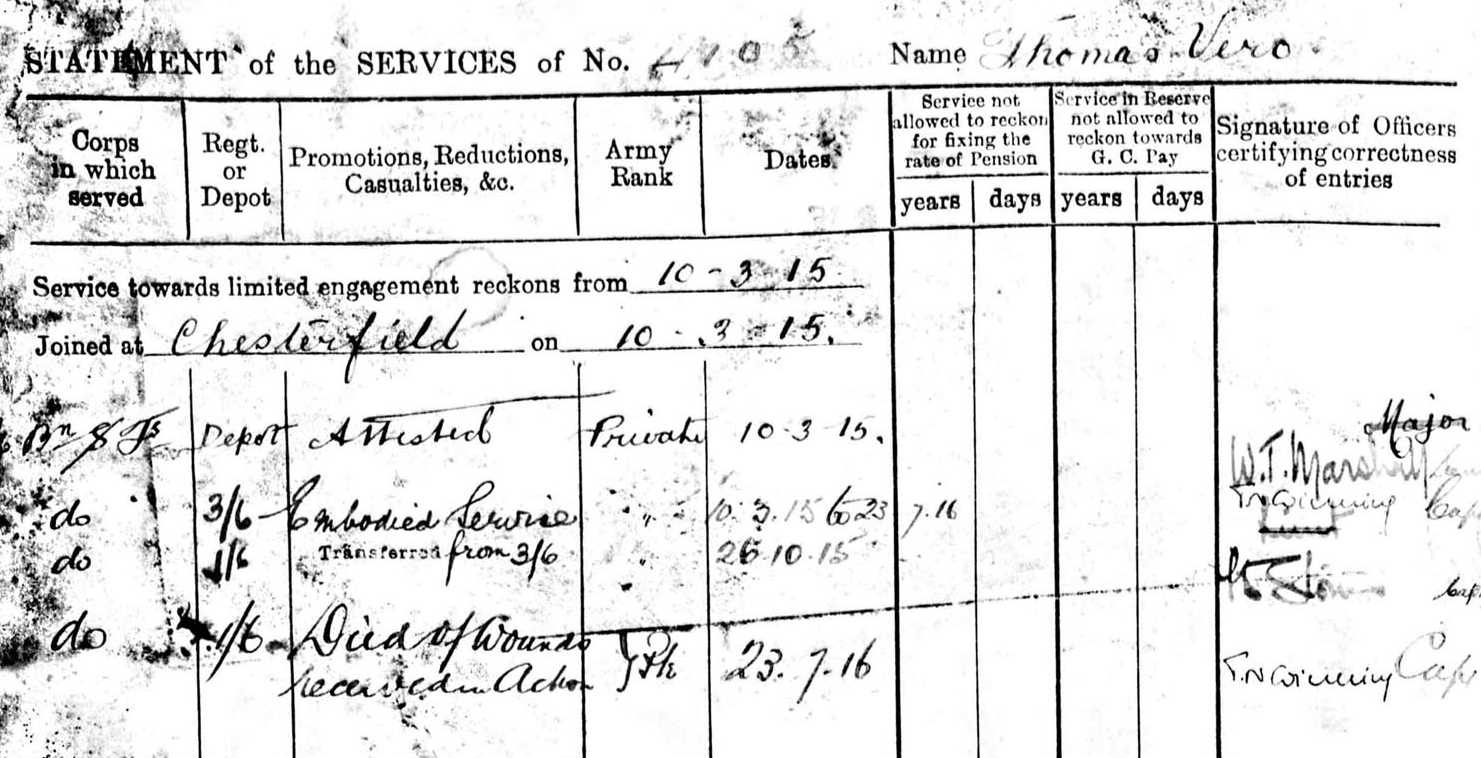 STATEMENT of the SERVICES of No. 4105 Name Thomas Vero
Corps in which served
Regt. or Depot
Promotions, Reductions, Casualties, &c.
Army Rank
Dates
Service not allowed to reckon for fixing the rate of Pension
years days
Service in Reserve not allowed to reckon towards G. C. Pay
years days
Signature of Officers certifying correctness of entries
Service towards limited engagement reckons from 10-3-15
Joined at Chesterfield on 10-3-15.
Bn Depot Attested Private 10-3-15. Major
W.T. Marshall
do 3/6 Embodied Service " 10.3.15 to 23 7.16 Capt
do 1/6 Transferred from 3/6 " 26.10.15 Capt
do 1/6 Died of Wounds
received in Action Pte 23.7.16 Capt